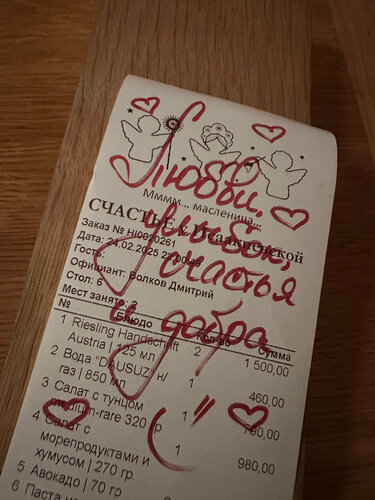 Любви,
улыбок,
счастья
и добра
Мммм... масленица...
СЧАСТЬЕ
Заказ № HI0020261
Дата: 24.02.2025
Гость:
Официант: Волков Дмитрий
Стол: 6
Мест занято: 2
№ Блюдо Кол-во Сумма
1 Riesling Handschrift 2 1 500,00
Austria | 125 мл
2 Вода "DAUSUZ" н/ 1 460,00
газ | 850 мл
3 Салат с тунцом 1 790,00
medium-rare 320 гр
4 Салат с 1 980,00
морепродуктами и
хумусом | 270 гр.
5 Авокадо | 70 гр
6 Паста